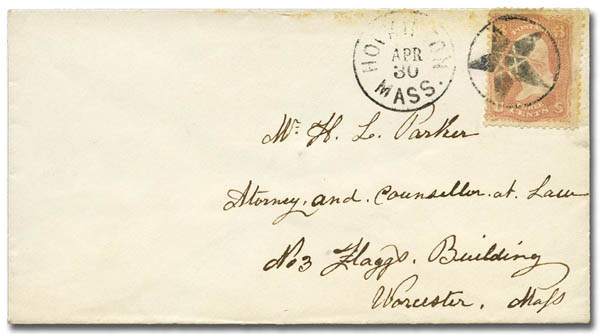 HOPKINTON
APR
30
MASS.
3
CENTS
Mr. H. L. Parker
Attorney. and. Counsellor. at. Law
No 3 Flaggs. Building
Worcester. Mass